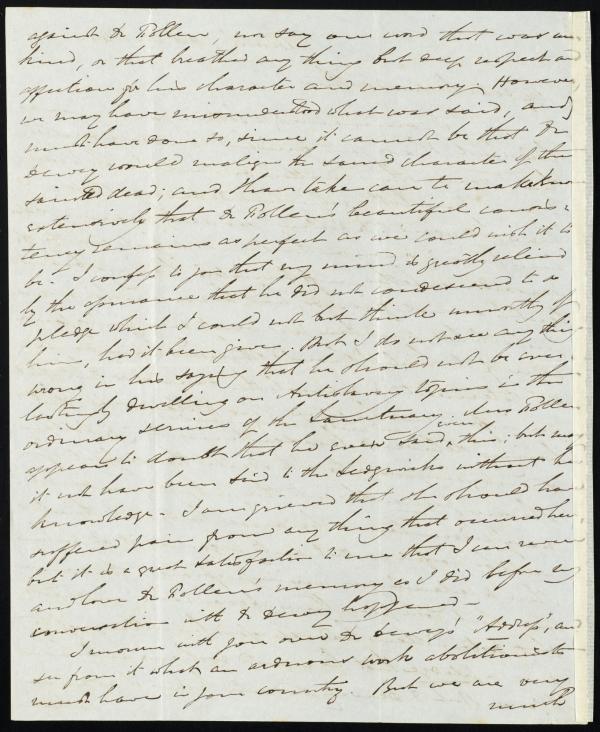 against Dr Follen, nor say one word that was un
kind, or that breathed any thing but deep respect and
affection for his character and memory. However,
we may have misunderstood what was said, and
must have done so, since it cannot be that Dr
Dewey would malign the sacred character of the
sainted dead; and I have taken care to make known
extensively that Dr Follen's beautiful consis-
tency remains as perfect as we could wish it to
be. I confess to you that my mind is greatly relieved
by the assurance that he did not condescend to a
pledge which I could not but think unworthy of
him, had it been given. But I do not see any thing
wrong in his saying that he should not be ever
lastingly dwelling on Antislavery topics in the
ordinary services of the Sanctuary. Mrs Follen
appears to doubt that he ever said even this; but may
it not have been said to the Sedgwicks without her
knowledge. I am grieved that she should have
suffered pain from any thing that occurred here,
but it is a great satisfaction to me that I can revere
and love Dr Follen's memory as I did before my
conversation with Dr Dewey happened —
I mourn with you over Dr Dewey's "Address", and
see from it what an arduous work abolitionists
must have in your country. But we are very
much